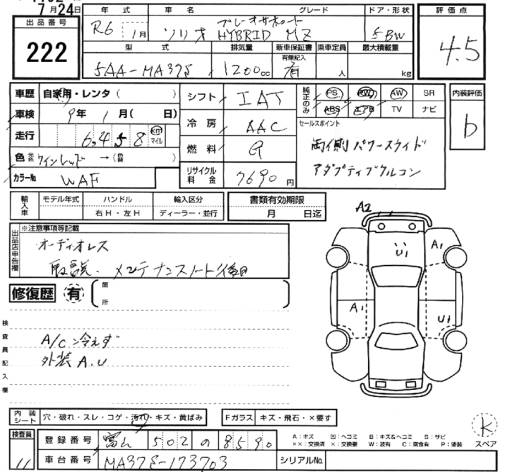 7月24日
出品番号 222
年式 R6年 1月
車名 ソリオ HYBRID MZ
グレード
ドア・形状 5 BW
評価点 4.5
型式 5AA-MA37S
排気量 1200cc
新車保証書 有無記入 有
乗車定員 人
最大積載量 kg
車歴 自家用・レンタ( )
シフト IAT
純正のみ PS PW AW SR
ABS エアB TV ナビ
内装評価 b
車検 9年 1月( 日)
冷房 AAC
走行 6,458 km マイル
燃料 G
セールスポイント
両側パワースライド
アダプティブクルコン
色 ワインレッド → ( )
カラーNo WAF
リサイクル料金 7690円
輸入車 モデル年式 ハンドル 右H・左H 輸入区分 ディーラー・並行
書類有効期限 月 日迄
出品店申告欄 ※注意事項等記載
オーディオレス
取説、メンテナンスノート後日
修復歴 有 箇所
検査員記入欄
A/C 冷えず
外装 A.U
A2
U1
A1
A1
U1
内装シート 穴・破れ・スレ・コゲ・汚れ・キズ・黄ばみ
Fガラス キズ・飛石・×要す
検査員 11
登録番号 富山 502 の 8590
A:キズ U:ヘコミ B:キズ&ヘコミ S:サビ
××:交換済 ×:要交換 W:波有 C:腐食有 P:塗装
K スペア
車台番号 MA37S-173703
シリアルNo.